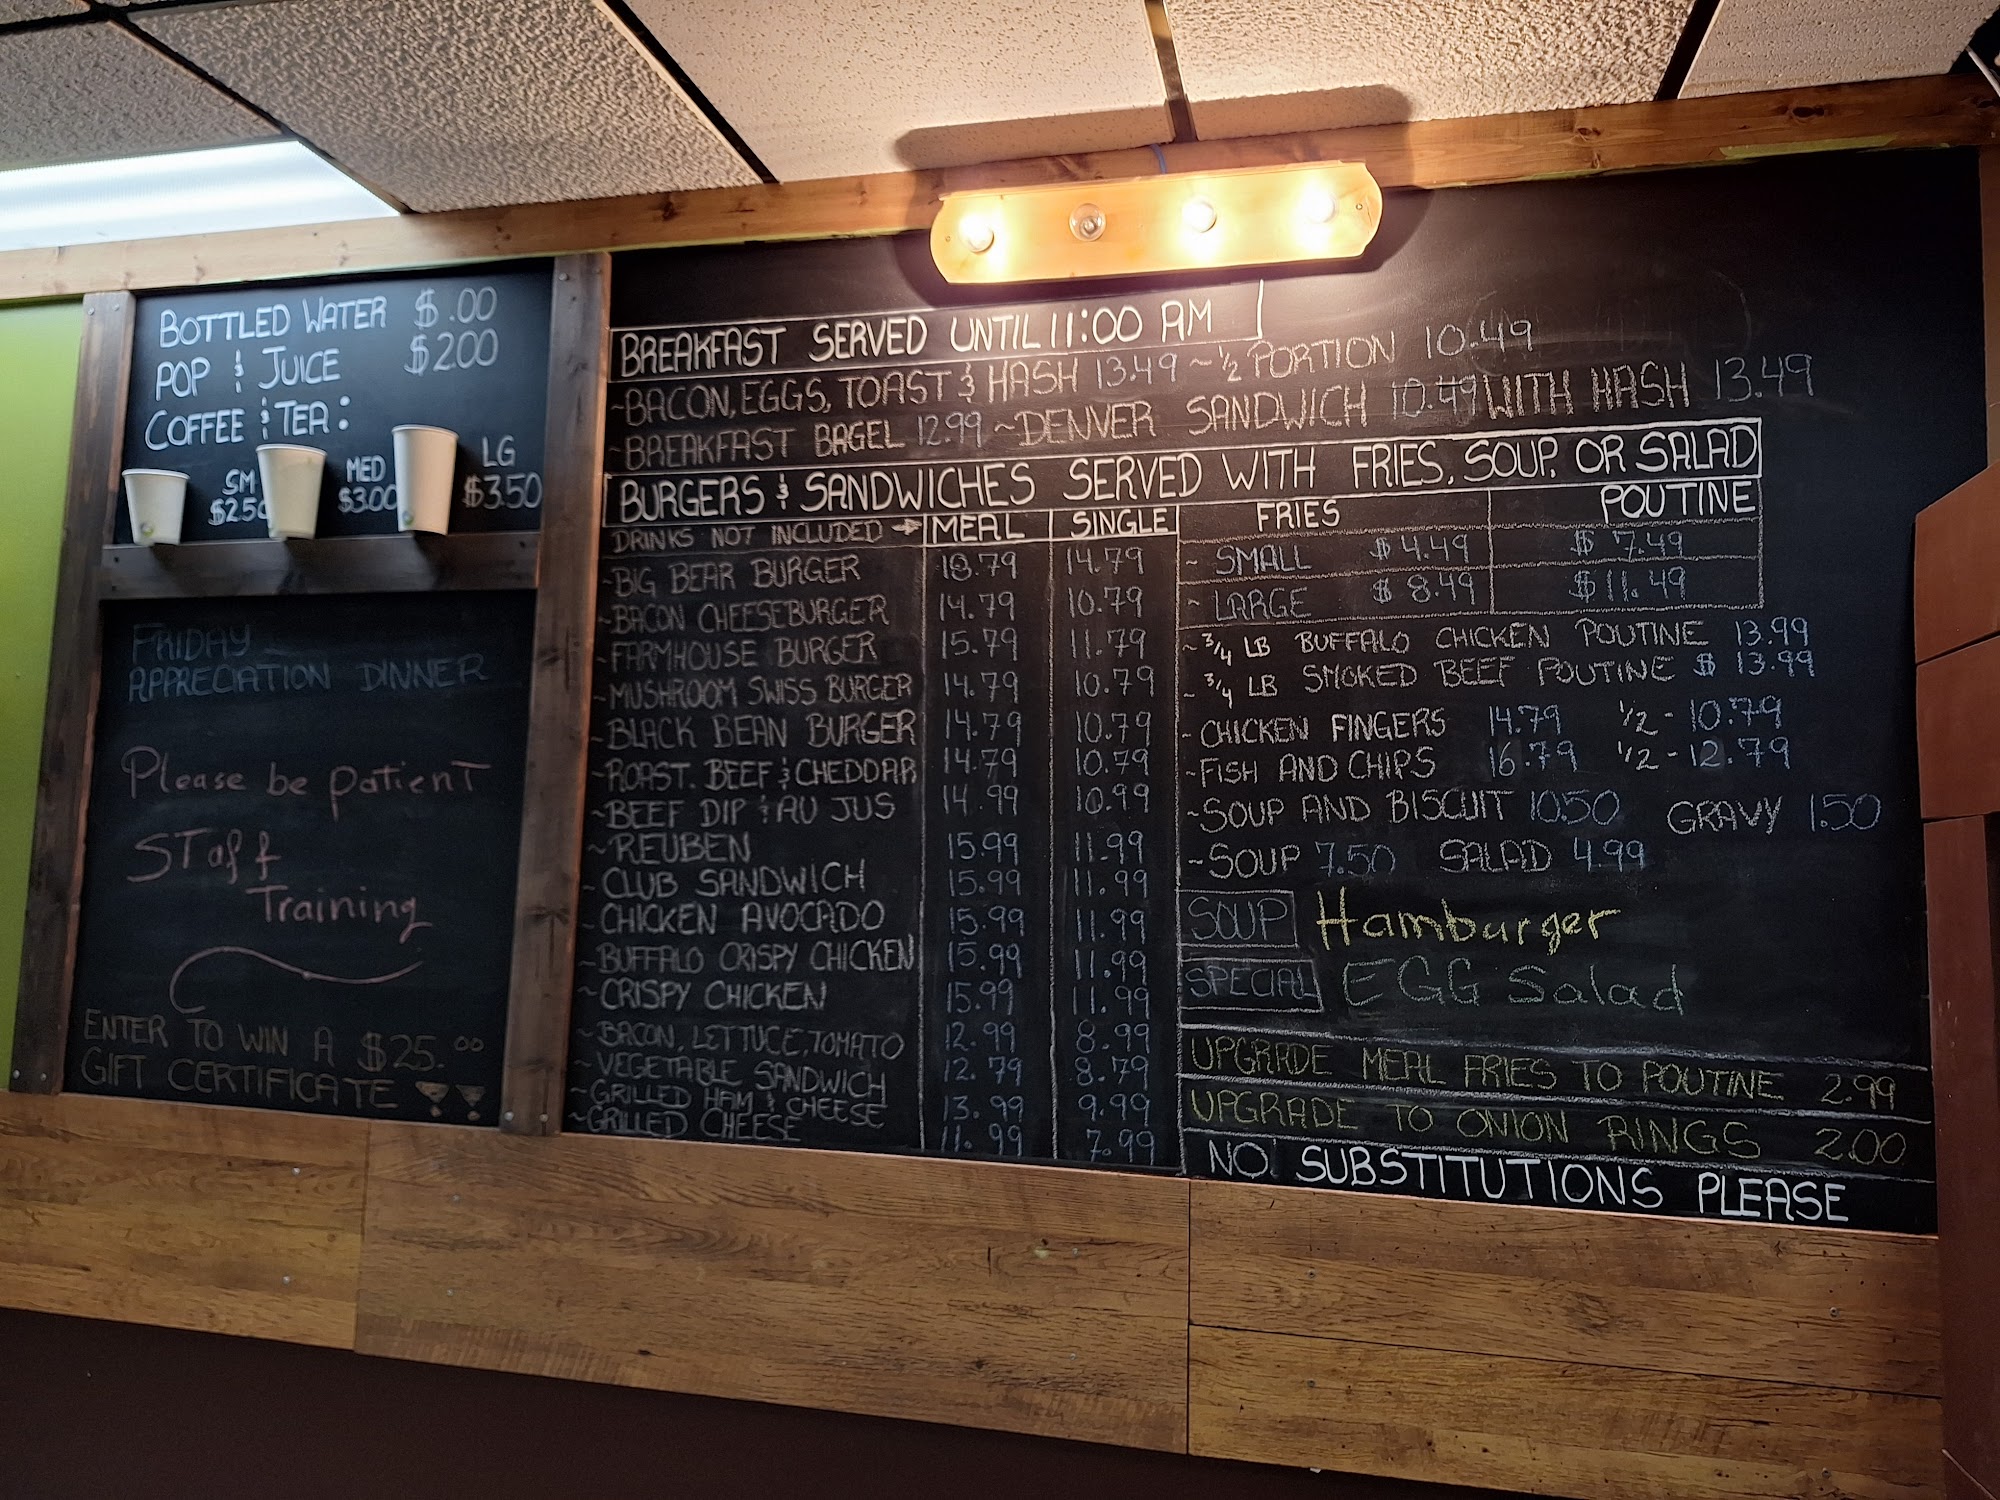 BOTTLED WATER $.00
POP & JUICE $2.00
COFFEE & TEA:
SM MED LG
$2.50 $3.00 $3.50
FRIDAY
APPRECIATION DINNER
Please be patient
Staff
Training
ENTER TO WIN A $25.00
GIFT CERTIFICATE
BREAKFAST SERVED UNTIL 11:00 AM
~BACON, EGGS, TOAST & HASH 13.49 ~ 1/2 PORTION 10.49
~BREAKFAST BAGEL 12.99 ~DENVER SANDWICH 10.49 WITH HASH 13.49
BURGERS & SANDWICHES SERVED WITH FRIES, SOUP, OR SALAD
DRINKS NOT INCLUDED → MEAL SINGLE
~BIG BEAR BURGER 18.79 14.79
~BACON CHEESEBURGER 14.79 10.79
~FARMHOUSE BURGER 15.79 11.79
~MUSHROOM SWISS BURGER 14.79 10.79
~BLACK BEAN BURGER 14.79 10.79
~ROAST. BEEF & CHEDDAR 14.79 10.79
~BEEF DIP & AU JUS 14.99 10.99
~REUBEN 15.99 11.99
~CLUB SANDWICH 15.99 11.99
~CHICKEN AVOCADO 15.99 11.99
~BUFFALO CRISPY CHICKEN 15.99 11.99
~CRISPY CHICKEN 15.99 11.99
~BACON, LETTUCE, TOMATO 12.99 8.99
~VEGETABLE SANDWICH 12.79 8.79
~GRILLED HAM & CHEESE 13.99 9.99
~GRILLED CHEESE 11.99 7.99
FRIES POUTINE
~ SMALL $4.49 $7.49
~ LARGE $8.49 $11.49
~ 3/4 LB BUFFALO CHICKEN POUTINE 13.99
~ 3/4 LB SMOKED BEEF POUTINE $13.99
~CHICKEN FINGERS 14.79 1/2 - 10.79
~FISH AND CHIPS 16.79 1/2 - 12.79
~SOUP AND BISCUIT 10.50 GRAVY 1.50
~SOUP 7.50 SALAD 4.99
SOUP Hamburger
SPECIAL EGG Salad
UPGRADE MEAL FRIES TO POUTINE 2.99
UPGRADE TO ONION RINGS 2.00
NO! SUBSTITUTIONS PLEASE